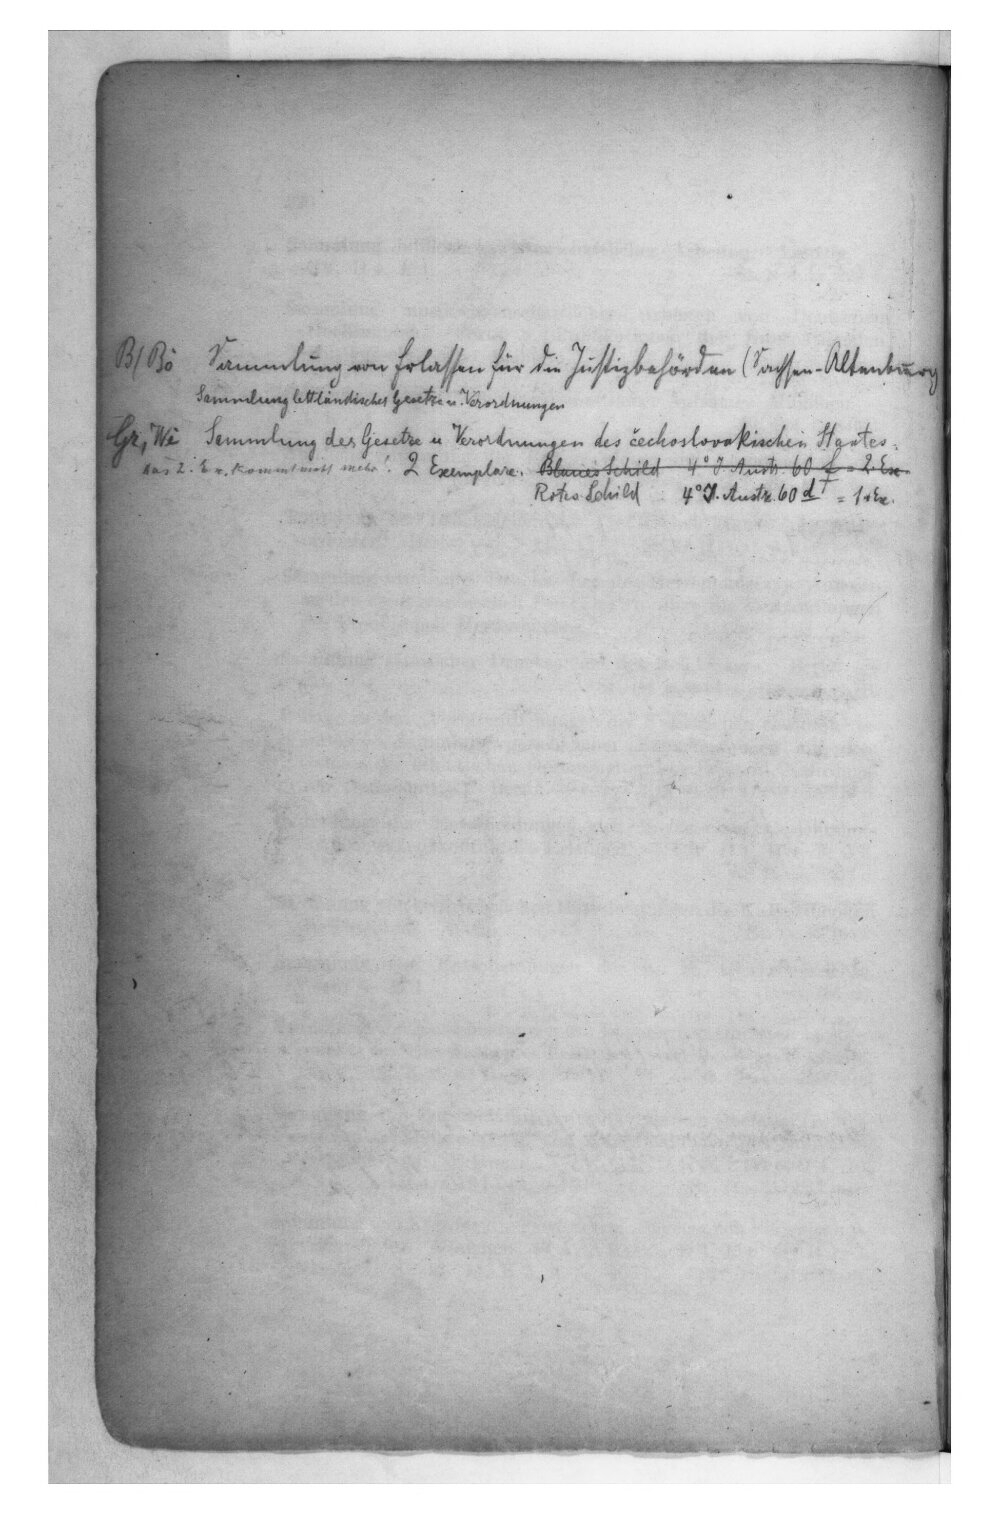 B/Bö Sammlung von Erlassen für die Justizbehörden (Sachsen-Altenburg
Sammlung lettländischer Gesetze u. Verordnungen
Gr, Wi Sammlung der Gesetze u Verordnungen des čechoslovakischen Staates.
das 2. Ex. kommt nicht mehr! 2 Exemplare. Blaues Schild 4° J. Austr. 60 f = 2. Ex
Rotes Schild 4° J. Austr. 60 d = 1. Ex.